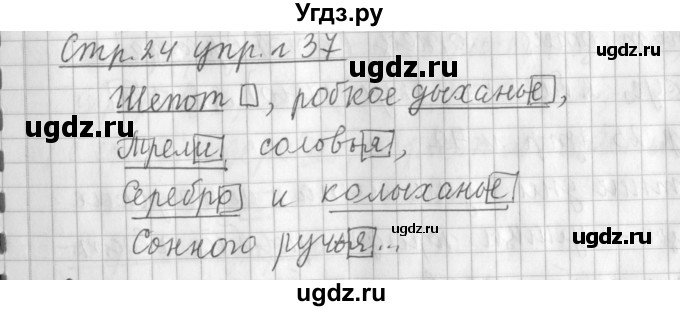 Угдз.ру
Стр. 24 упр. 37
ugdz.ru
ugdz.ru
Шепот, робкое дыханье,
ugdz.ru
Трели соловья,
Серебро и колыханье
ugdz.ru
ugdz.ru
Сонного ручья...
ugdz.ru
ugdz.ru